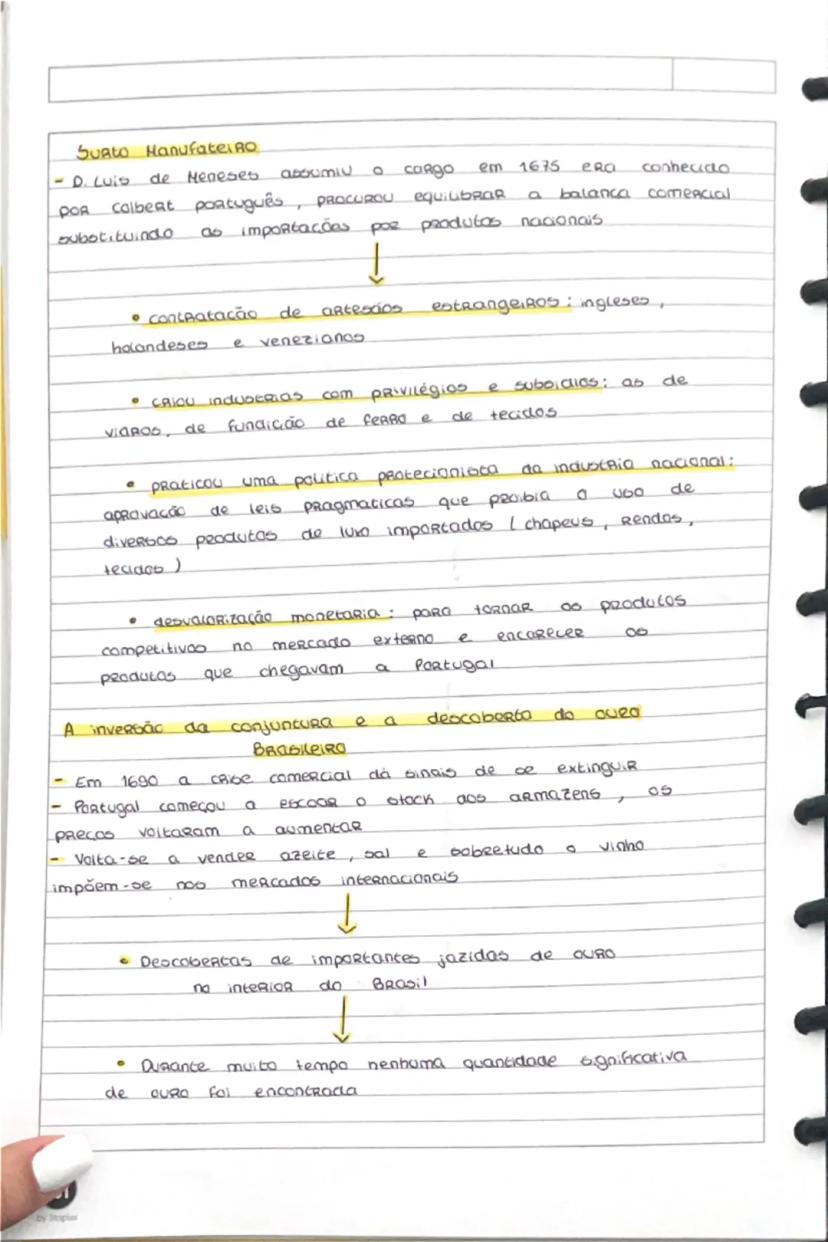 Surto Manufateiro
- D. Luis de Meneses assumiu o cargo em 1675 era conhecido
por Colbert português, procurou equilibrar a balança comercial
substituindo as importações por produtos nacionais
• contratação de artesãos estrangeiros: ingleses,
holandeses e venezianos
• criou industrias com privilégios e subsidios: as de
vidros, de fundição de ferro e de tecidos
• praticou uma politica protecionista da industria nacional:
aprovação de leis pragmaticas que proibia o uso de
diversos produtos de luxo importados (chapeus, rendas,
tecidos)
• desvalorização monetaria: para tornar os produtos
competitivos no mercado externo e encarecer os
produtos que chegavam a Portugal
A inversão da conjuntura e a descoberta do ouro
Brasileiro
- Em 1690 a crise comercial dá sinais de se extinguir
- Portugal começou a escoar o stock dos armazens, os
preços voltaram a aumentar
- Volta-se a vender azeite, sal e sobretudo o vinho
impõem-se nos mercados internacionais
• Descobertas de importantes jazidas de ouro
no interior do Brasil
• Durante muito tempo nenhuma quantidade significativa
de ouro foi encontrada